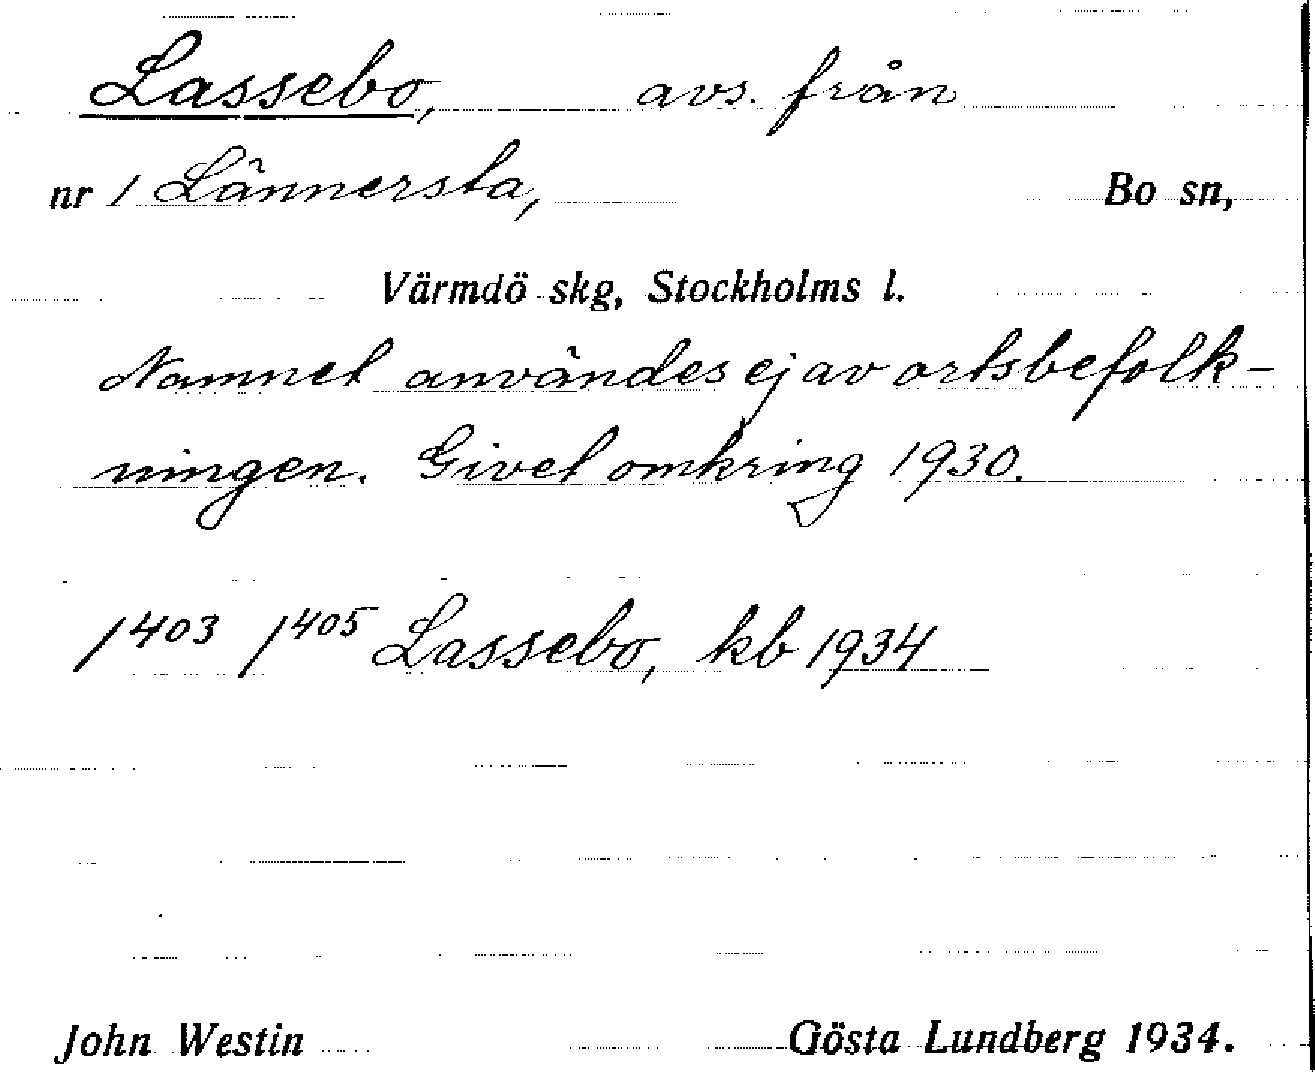 Lassebo, avs. från
nr 1 Lännersta, Bo sn,
Värmdö skg, Stockholms l.
Namnet användes ej av ortsbefolk-
ningen. Givet omkring 1930.
1⁴⁰³ 1⁴⁰⁵ Lassebo, kb 1934
John Westin Gösta Lundberg 1934.